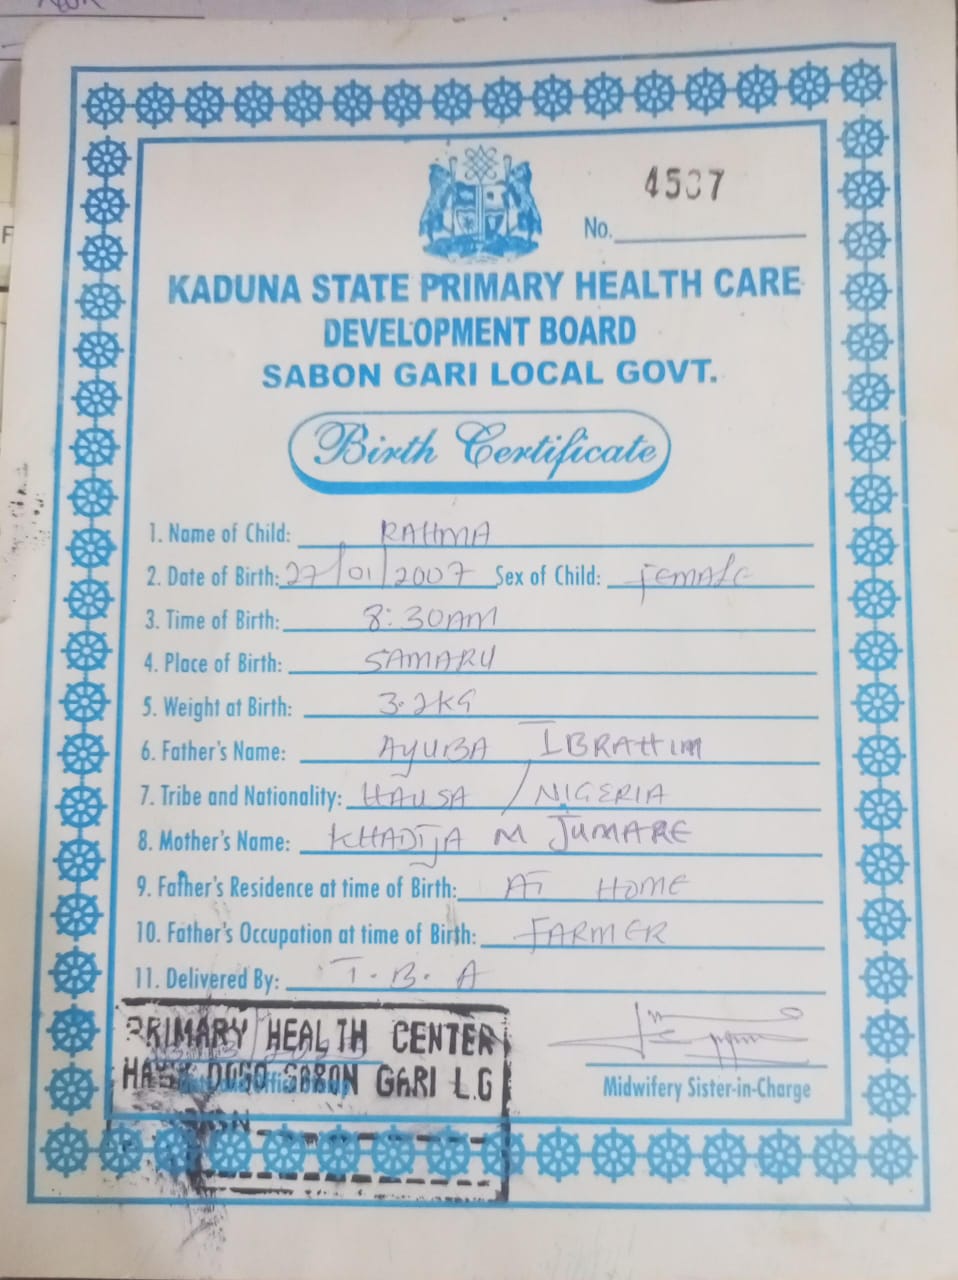 4537
No.
KADUNA STATE PRIMARY HEALTH CARE
DEVELOPMENT BOARD
SABON GARI LOCAL GOVT.
Birth Certificate
1. Name of Child: RAHMA
2. Date of Birth: 27/01/2007 Sex of Child: FEMALE
3. Time of Birth: 8:30AM
4. Place of Birth: SAMARU
5. Weight at Birth: 3.2KG
6. Father's Name: AYUBA IBRAHIM
7. Tribe and Nationality: HAUSA / NIGERIA
8. Mother's Name: KHADIJA M JUMARE
9. Father's Residence at time of Birth: AT HOME
10. Father's Occupation at time of Birth: FARMER
11. Delivered By: T.B.A
PRIMARY HEALTH CENTER
DOGO SABON GARI L.G
Midwifery Sister-in-Charge